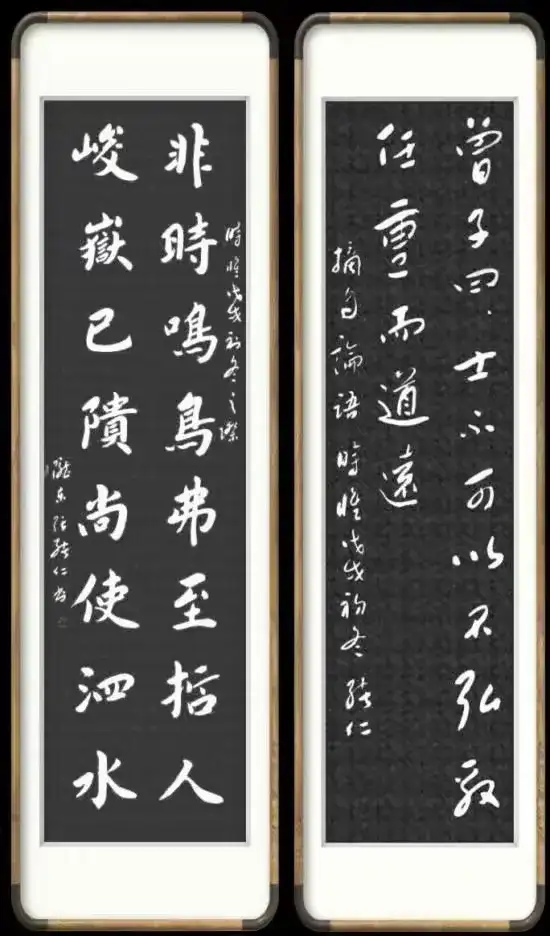 曾子曰、士不可以不弘毅
任重而道遠
摘自論語 時惟戊戌初冬 仁
時惟戊戌初冬之際
非時鳴鳥弗至哲人
峻嶽已隤尚使泗水
隴東張仁書